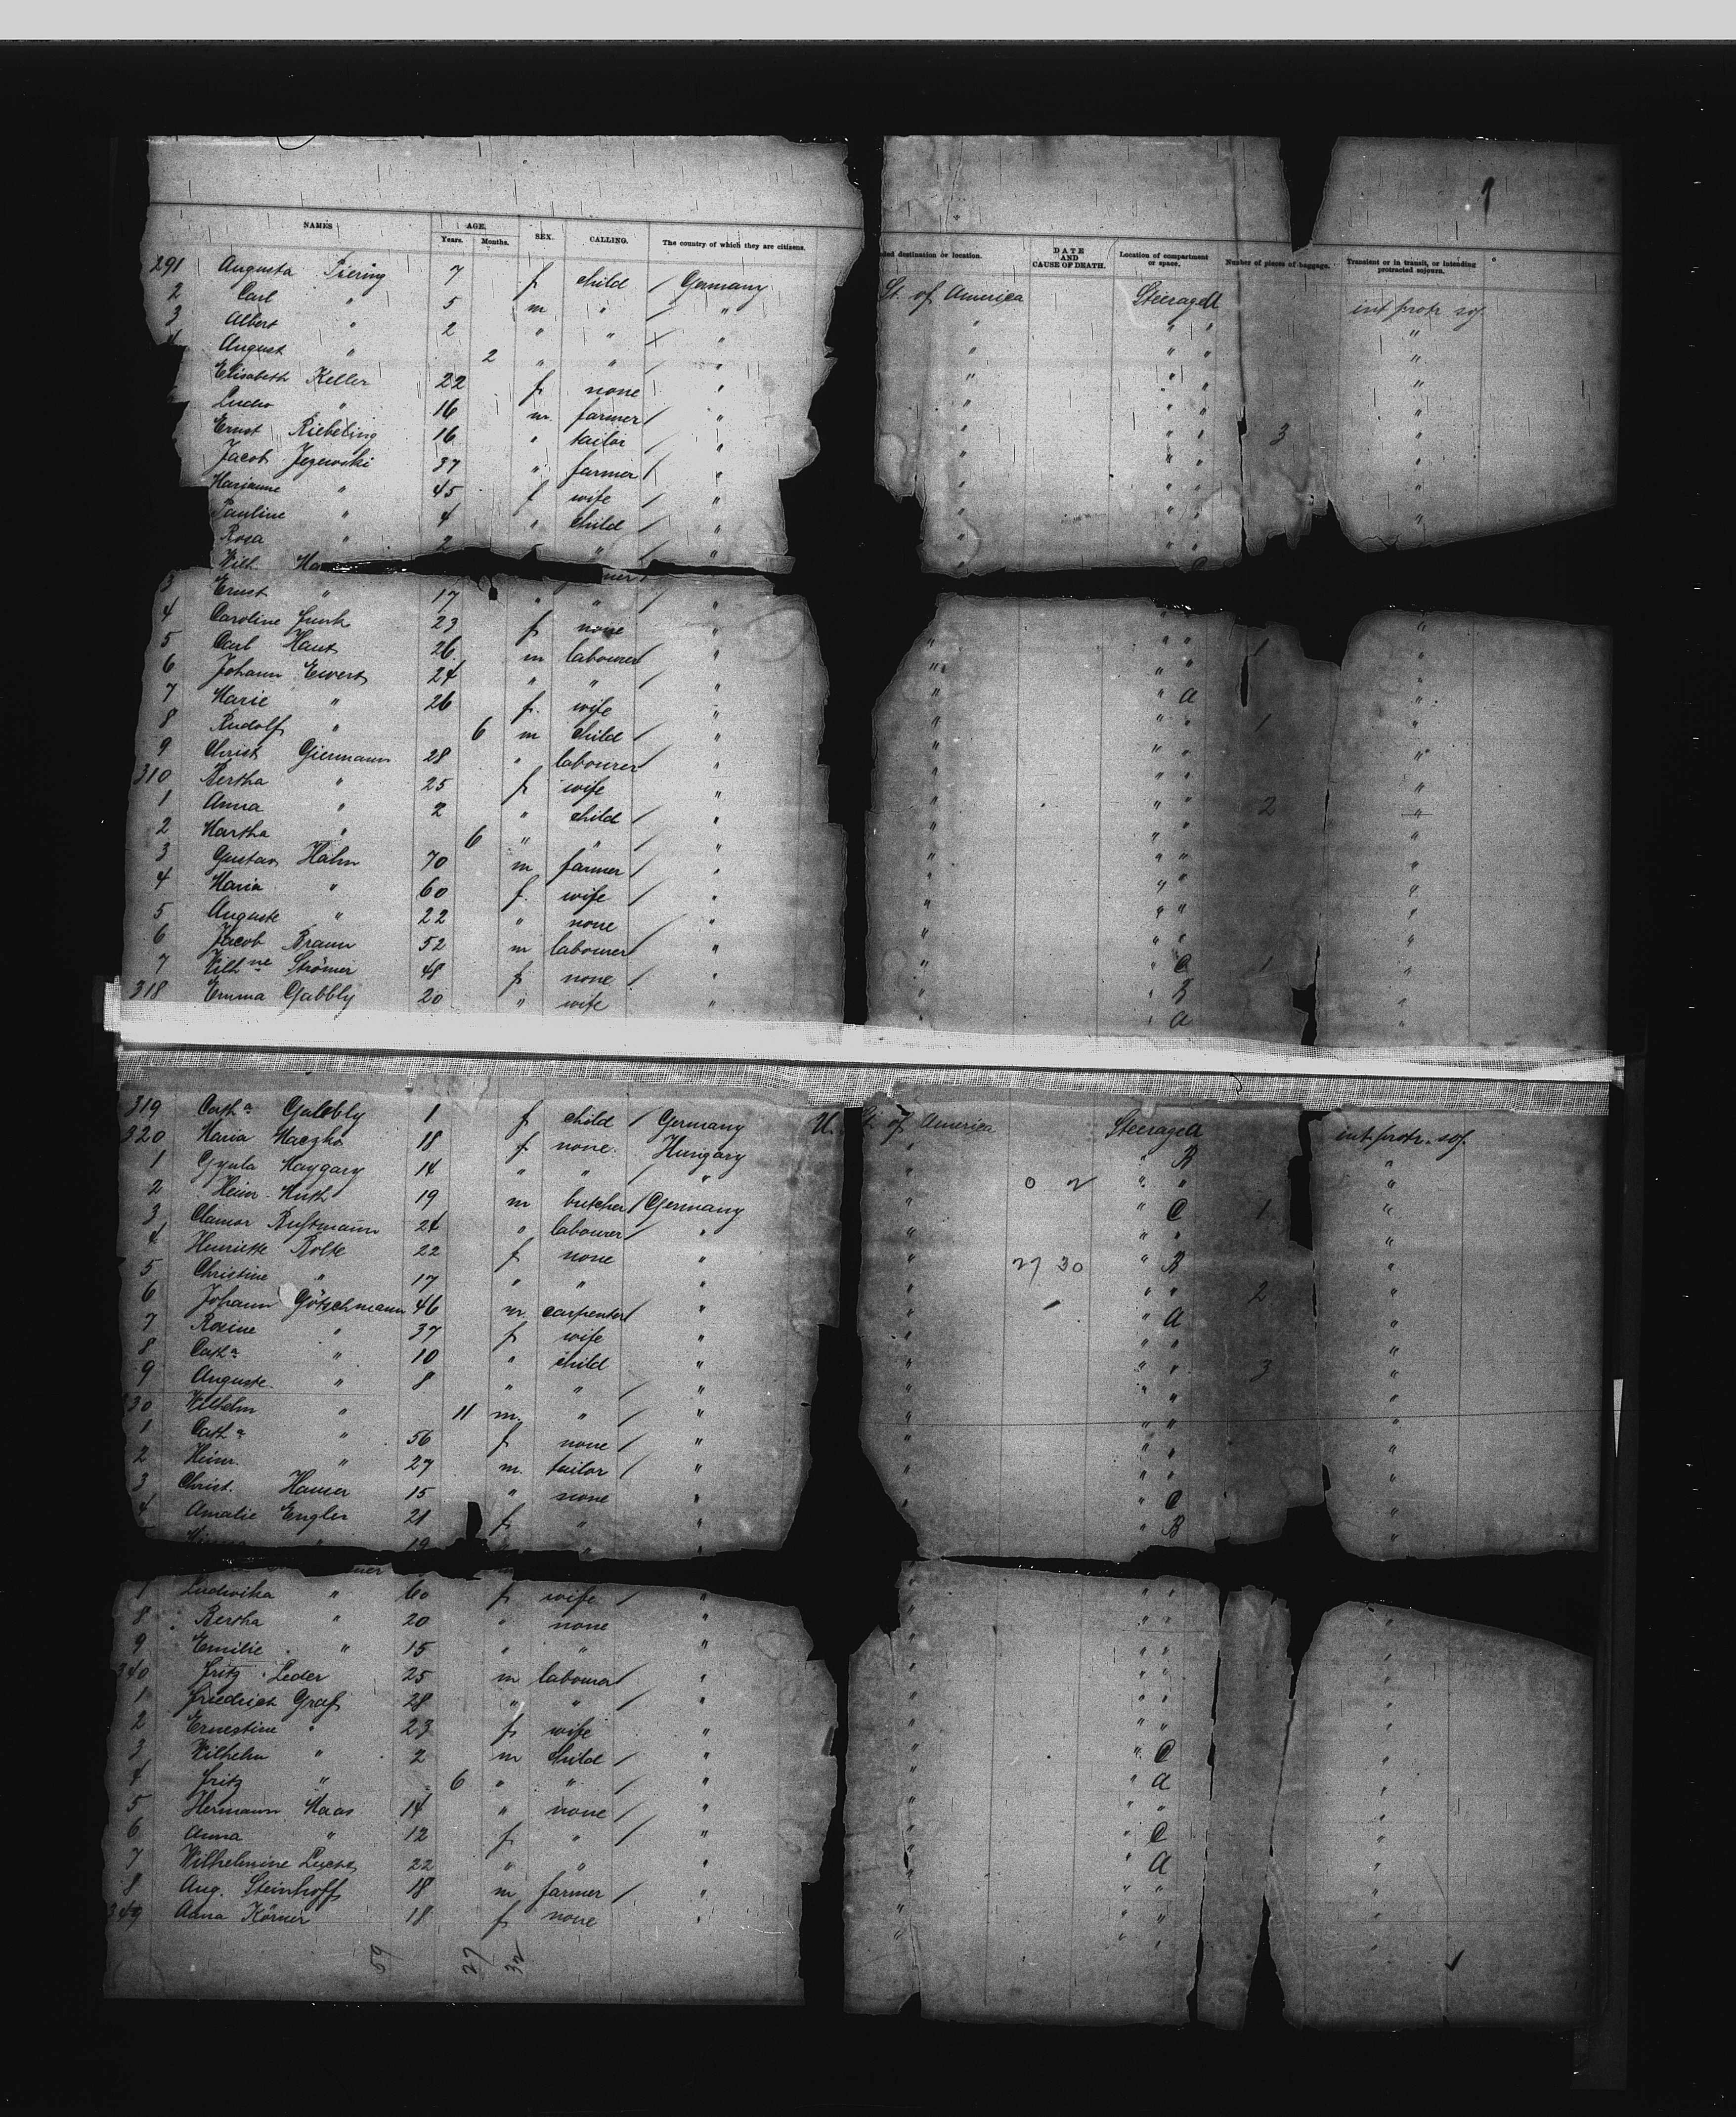 NAMES AGE. Years. Months. SEX. CALLING. The country of which they are citizens. ded destination or location. DATE AND CAUSE OF DEATH. Location of compartment or space. Number of pieces of baggage. Transient or in transit, or intending protracted sojourn.
291 Augusta Piering 7 f child / Germany St. of America Steerage A int protr soj
2 Carl " 5 m " / " " " " "
3 Albert " 2 " " / " " " " "
4 August " 2 " " / " " " " "
Elisabeth Keller 22 f none " " " " "
16 m. farmer / " " " " "
Ernst Riebeling 16 " tailor " " " " 3 "
Jacob Jezewski 37 " farmer / " " " " "
Marianne " 45 f wife / " " " " "
Pauline " 4 " child / " " " " "
Rosa " 2 " / "
Wilh. Ha
3 Ernst " 17 " " / "
4 Caroline Junk 23 f none " " " " 1 "
5 Carl Haut 26 m labourer / " " " " "
6 Johann Ewert 24 " " / " " " A "
7 Marie " 26 f. wife " " " " 1 "
8 Rudolf " 6 m child / " " " " "
9 Christ Giermann 28 " labourer / " " " " "
310 Bertha " 25 f wife " " " " 2 "
1 Anna " 2 " child / " " " " "
2 Martha " 6 " " / " " " " "
3 Gustav Hahn 70 m farmer / " " " " "
4 Maria " 60 f. wife / " " " " "
5 Auguste " 22 " none / " " " " "
6 Jacob Braun 52 m labourer / " " " C 1 "
7 Wilhne Strömer 48 f none / " " " B "
318 Emma Gabbly 20 " wife " " " A "
319 Catha Gabbly 1 f child / Germany U. St. of America Steerage A int protr. soj.
320 Maria Maczko 18 f none. Hungary " " B "
1 Gyula Maygary 14 " " " " " " "
2 Heinr. Muth 19 m butcher / Germany " " C 1 "
3 Clamor Rustmann 24 " labourer / " " " " "
4 Henriette Rolte 22 f none " " " B "
5 Christine " 17 " " " " " " 2 "
6 Johann Götschmann 46 m. carpenter / " " " A "
7 Rosine " 37 f wife " " " " "
8 Catha " 10 " child " " " " 3 "
9 Auguste " 8 " " / " " " " "
330 Wilhelm " 11 m. " / " " " " "
1 Catha " 56 f none / " " " " "
2 Heinr. " 27 m. tailor / " " " " "
3 Christ. Hamer 15 " none " " " C "
4 Amalie Engler 21 f " " " B "
19 " "
Ludwika " 60 f wife / " " " " "
8 Bertha " 20 " none " " " " "
9 Emilie " 15 " " " " " " "
340 Fritz Leder 25 m labourer / " " " " "
1 Friedrich Graf 28 " " / " " " " "
2 Ernestine " 23 f wife " " " " "
3 Wilhelm " 2 m child / " " " C "
4 Fritz " 6 " " / " " " A "
5 Hermann Haas 14 " none / " " " " "
6 Anna " 12 f " / " " " C "
7 Wilhelmine 22 " " " " " A "
8 Aug. Steinhoff 18 m farmer / " " " " "
349 Anna Körner 18 f none " " " " "
59 27 32